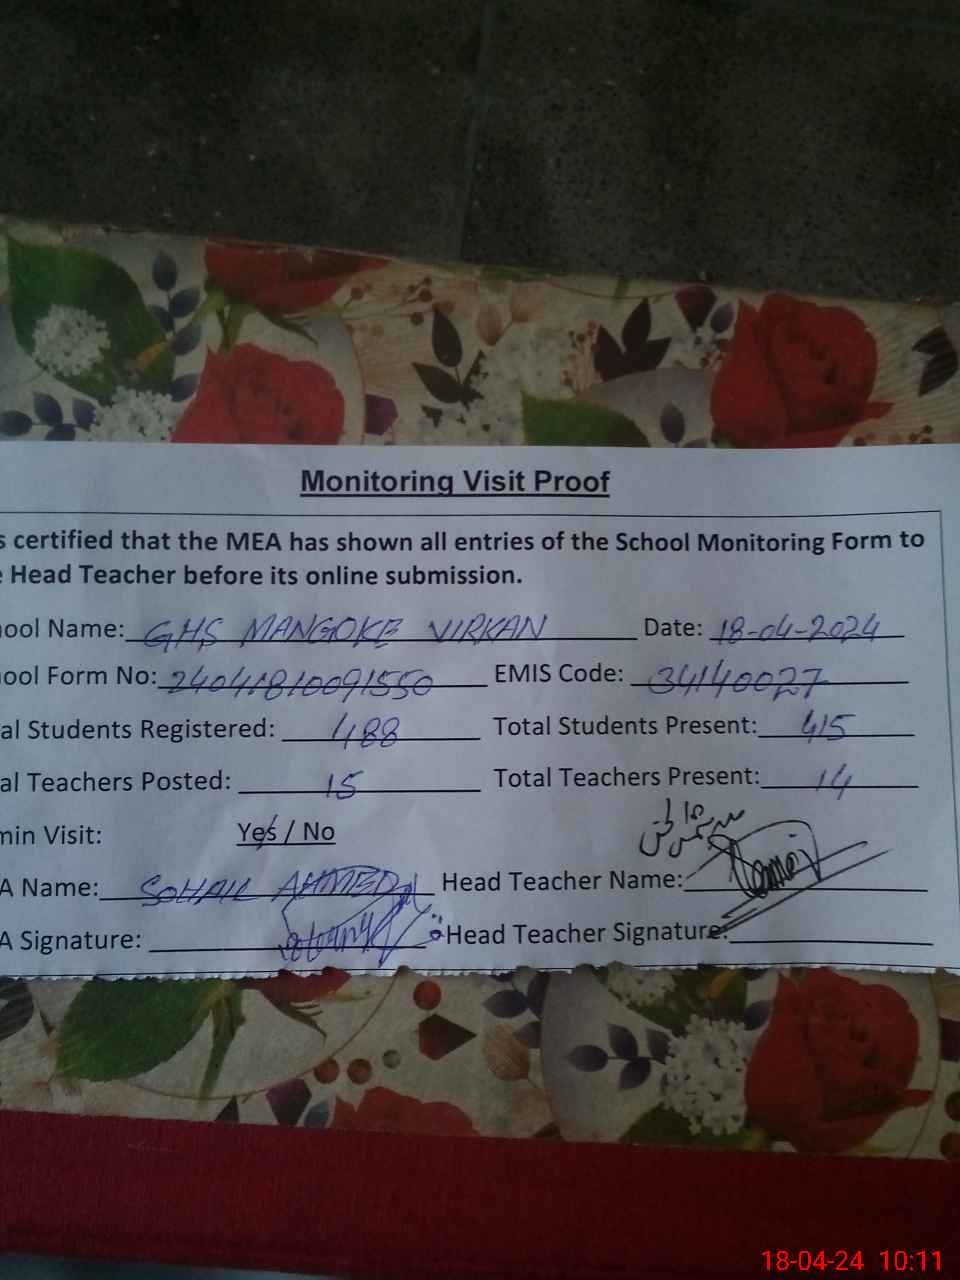 Monitoring Visit Proof
s certified that the MEA has shown all entries of the School Monitoring Form to
e Head Teacher before its online submission.
ool Name: GHS MANGOKE VIRKAN Date: 18-04-2024
ool Form No: 24041810091550 EMIS Code: 34140027
al Students Registered: 488 Total Students Present: 415
al Teachers Posted: 15 Total Teachers Present: 14
min Visit: Yes / No
A Name: SOHAIL AHMED Head Teacher Name:
A Signature: Head Teacher Signature:
18-04-24 10:11